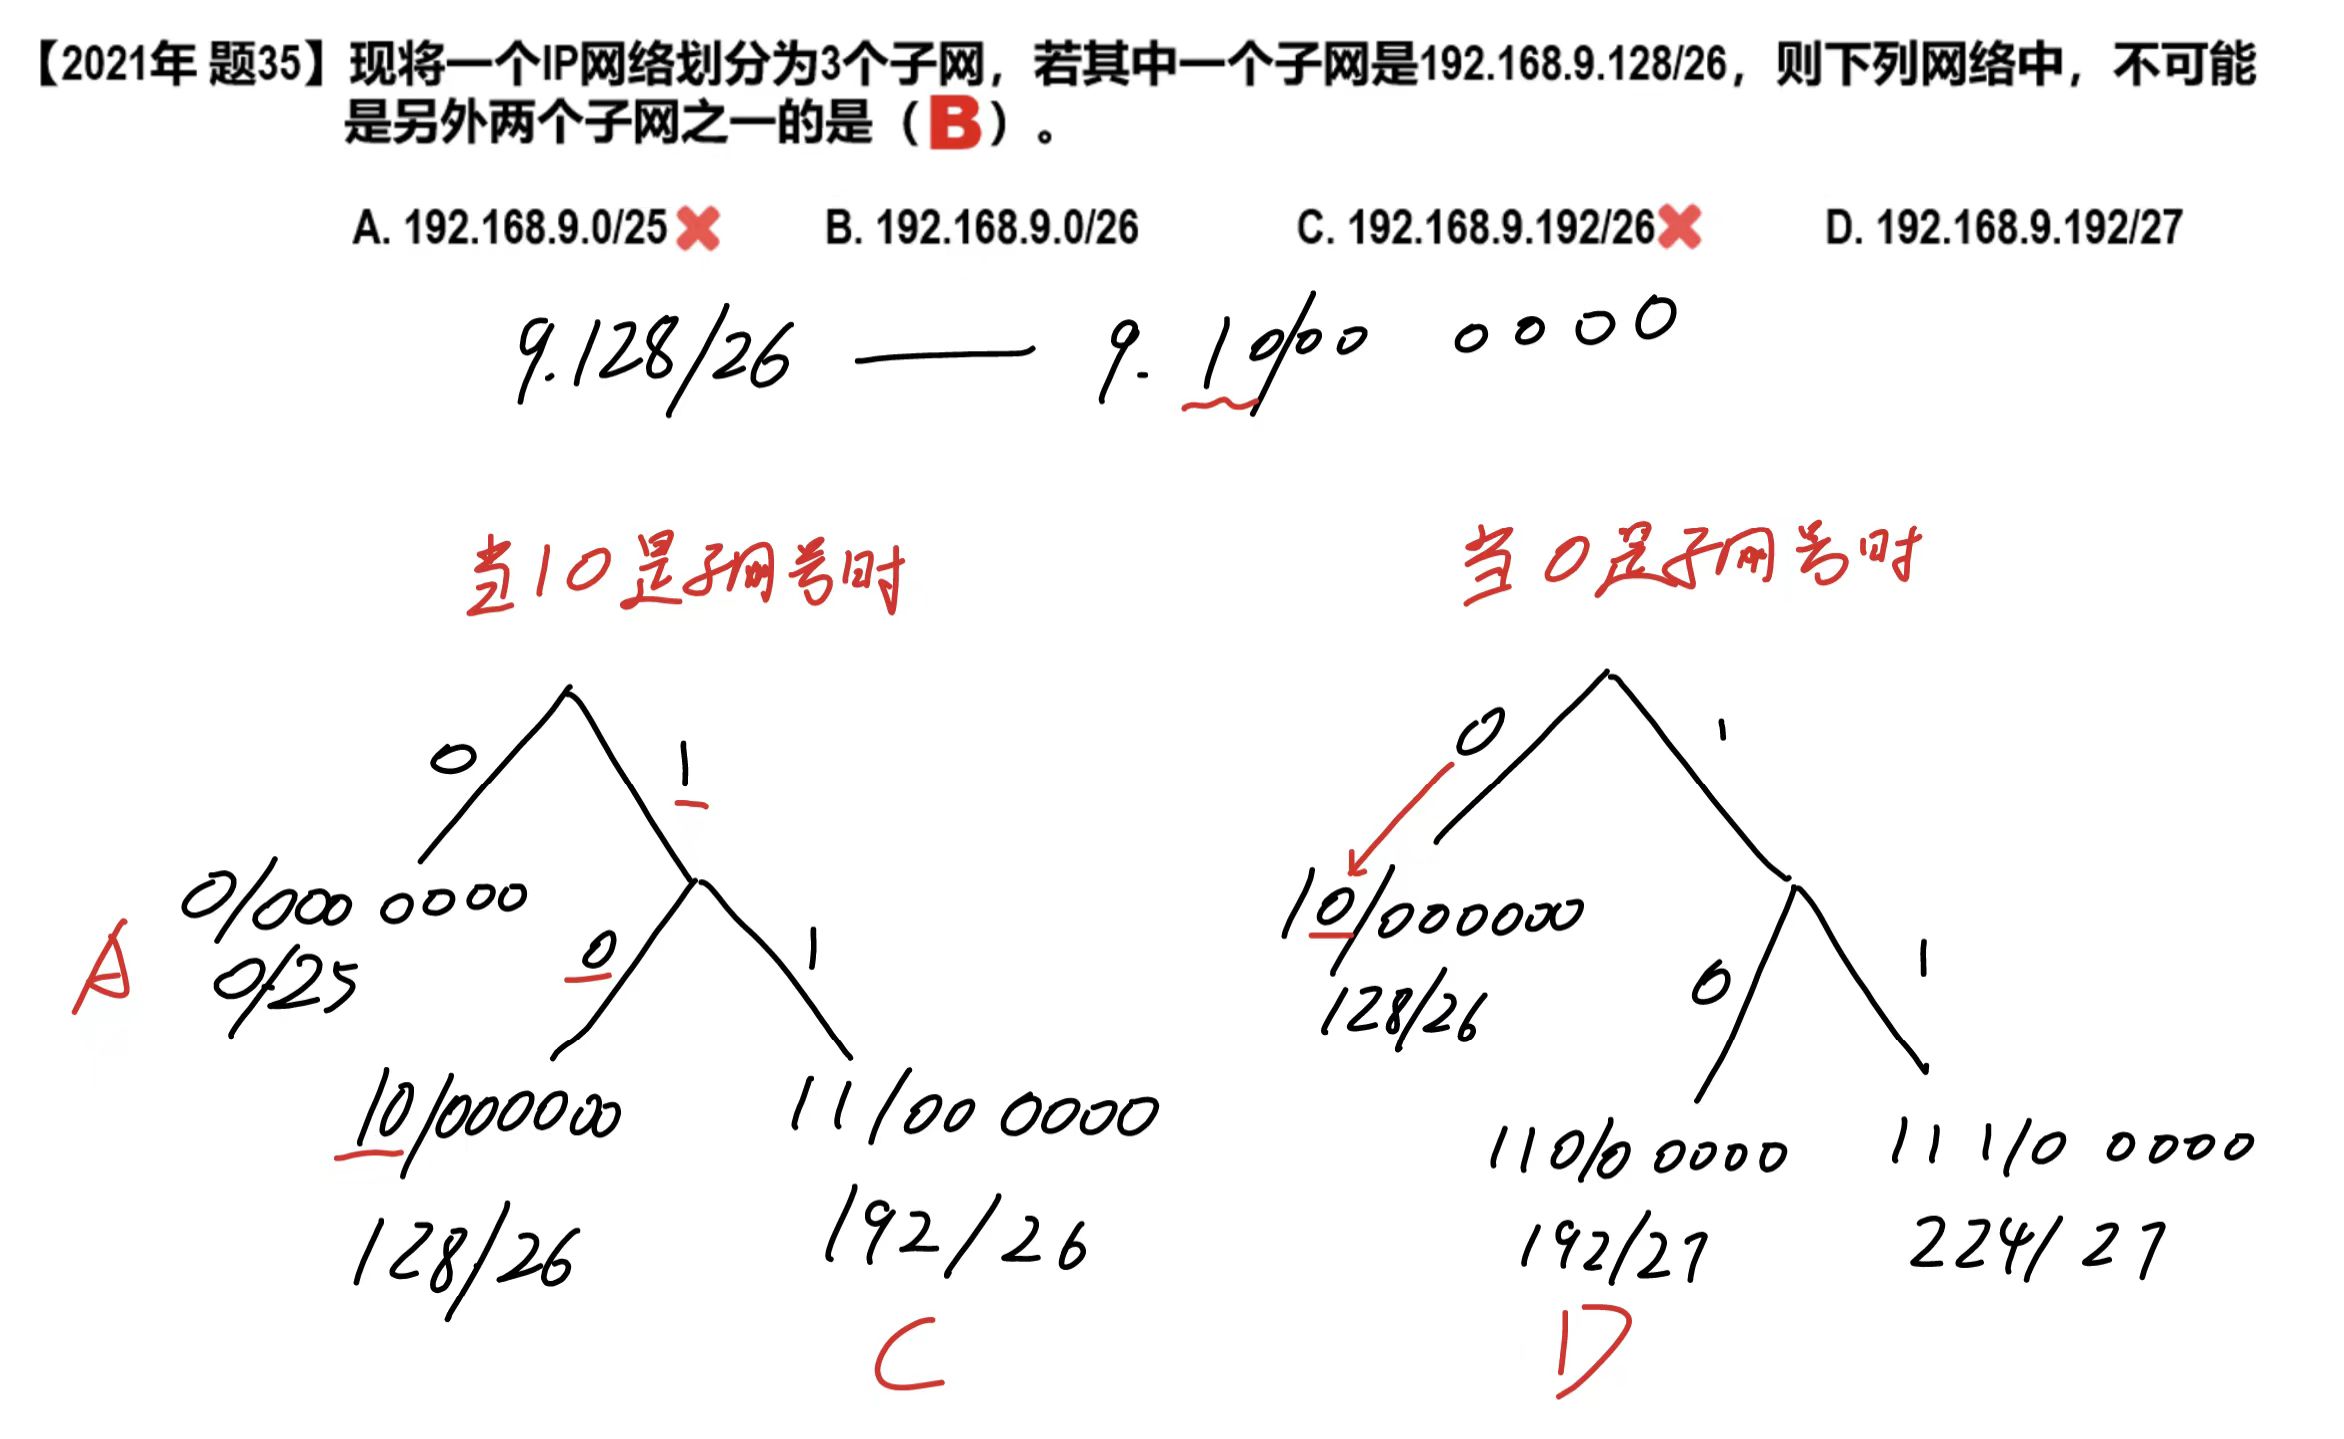 【2021年 题35】现将一个IP网络划分为3个子网，若其中一个子网是192.168.9.128/26，则下列网络中，不可能
是另外两个子网之一的是（B）。
A. 192.168.9.0/25 B. 192.168.9.0/26 C. 192.168.9.192/26 D. 192.168.9.192/27
9.128/26 — 9. 10/00 0000
当10是子网号时
0 1
0/000 0000
A 0/25
0 1
10/000000 11/00 0000
128/26 192/26
C
当0是子网号时
0 1
10/000000
128/26
0 1
110/0 0000 111/0 0000
192/27 224/27
D